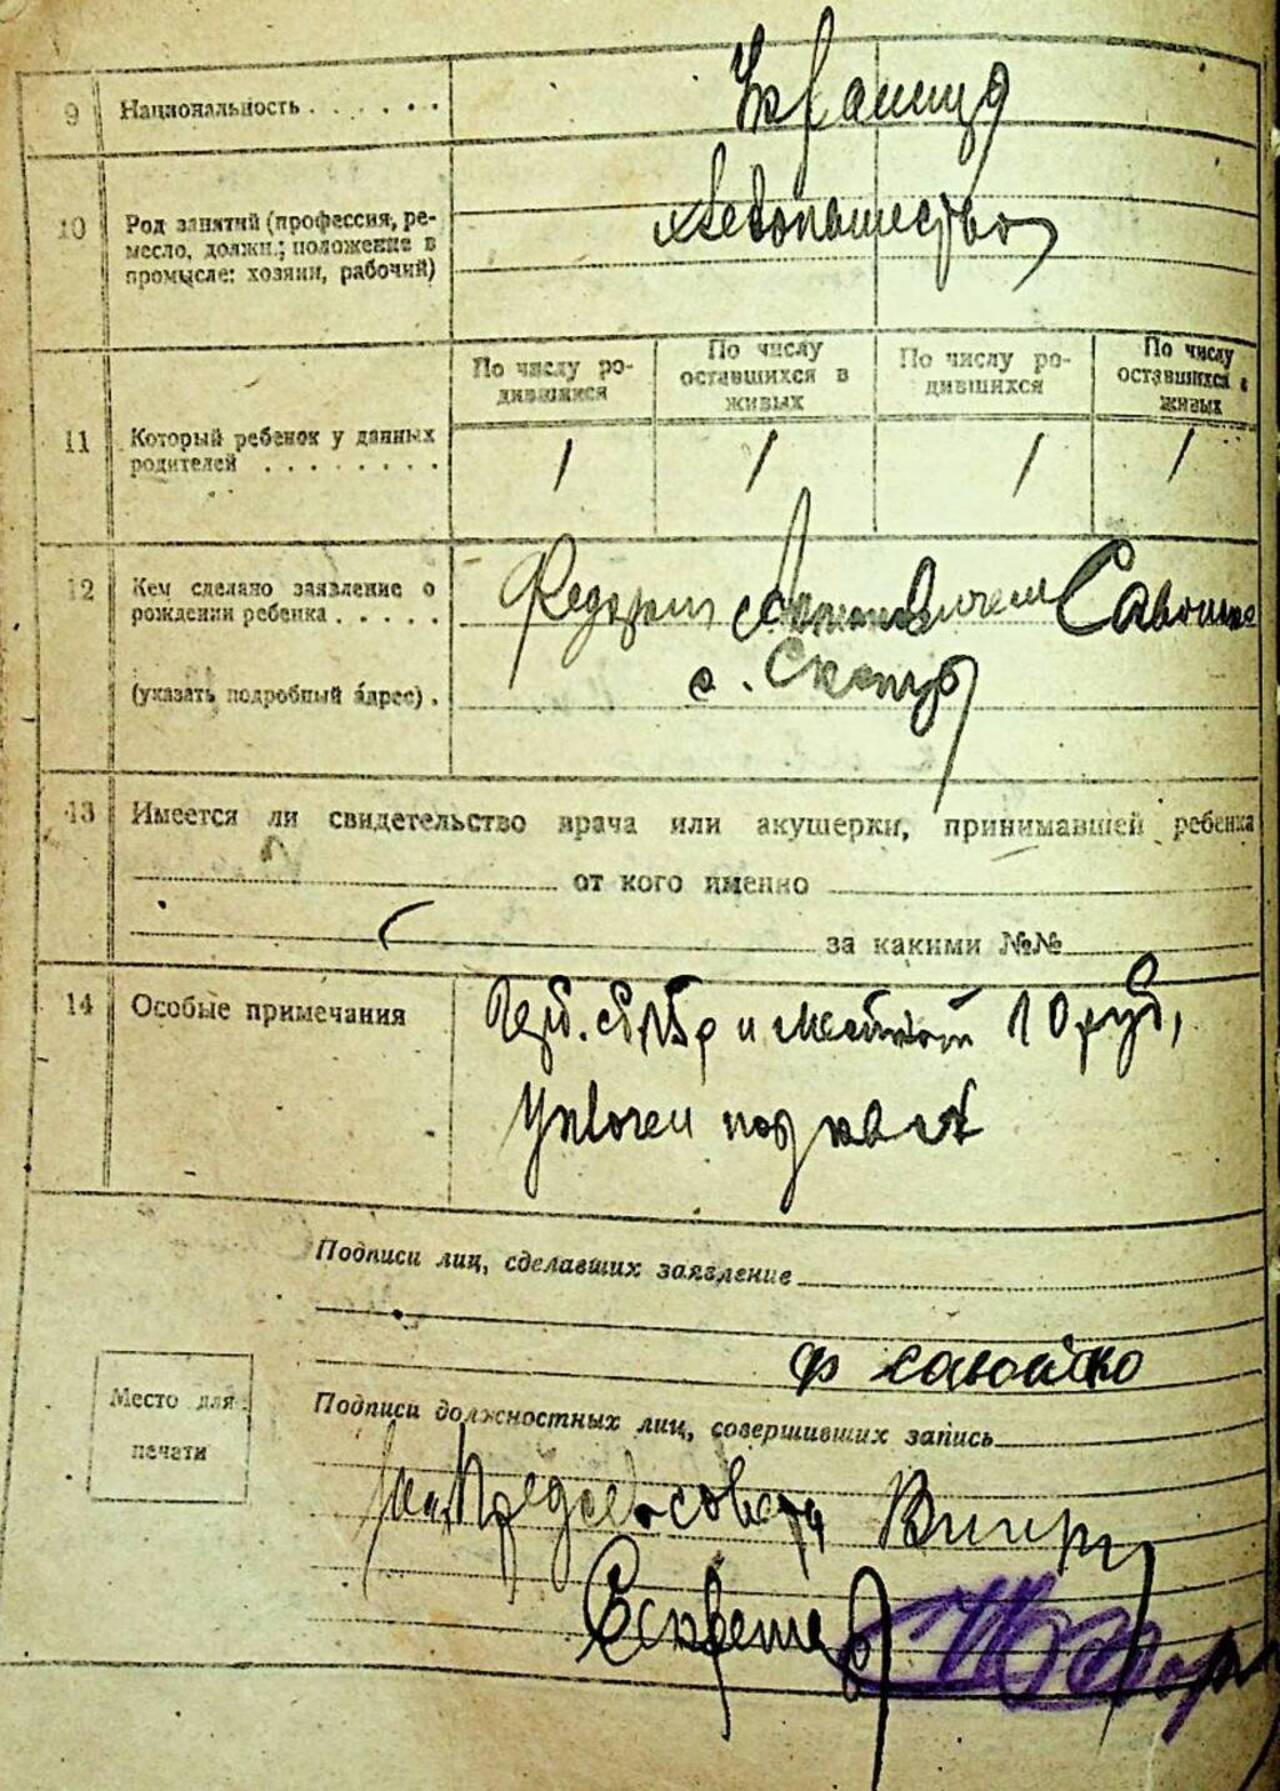 9 Национальность . . . . . .
Украинцы
10 Род занятий (профессия, ре-
месло, должн.; положение в
промысле: хозяин, рабочий)
хлебопашество
По числу ро-
дившихся
По числу
оставшихся в
живых
По числу ро-
дившихся
По числу
оставшихся в
живых
11 Который ребенок у данных
родителей . . . . . . . .
1 1 1 1
12 Кем сделано заявление о
рождении ребенка . . . . .
(указать подробный адрес) .
Федором
с.
13 Имеется ли свидетельство врача или акушерки, принимавшей ребенка
от кого именно
за какими №№
14 Особые примечания
и местком 10 руб,
Уплочен под
Подписи лиц, сделавших заявление
Ф савойко
Место для
печати
Подписи должностных лиц, совершивших запись
Предсельсовета
Секретарь